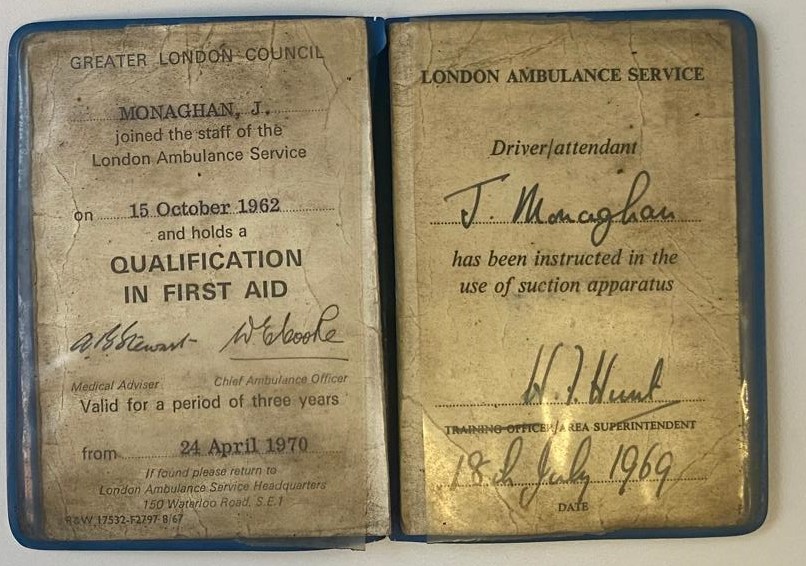 GREATER LONDON COUNCIL
MONAGHAN, J.
joined the staff of the
London Ambulance Service
on 15 October 1962
and holds a
QUALIFICATION
IN FIRST AID
W E Cooke
Medical Adviser Chief Ambulance Officer
Valid for a period of three years
from 24 April 1970
If found please return to
London Ambulance Service Headquarters
150 Waterloo Road, S.E.1
17532-F2797-8/67
LONDON AMBULANCE SERVICE
Driver/attendant
J. Monaghan
has been instructed in the
use of suction apparatus
W. J. Hunt
TRAINING OFFICER/AREA SUPERINTENDENT
18th July 1969
DATE